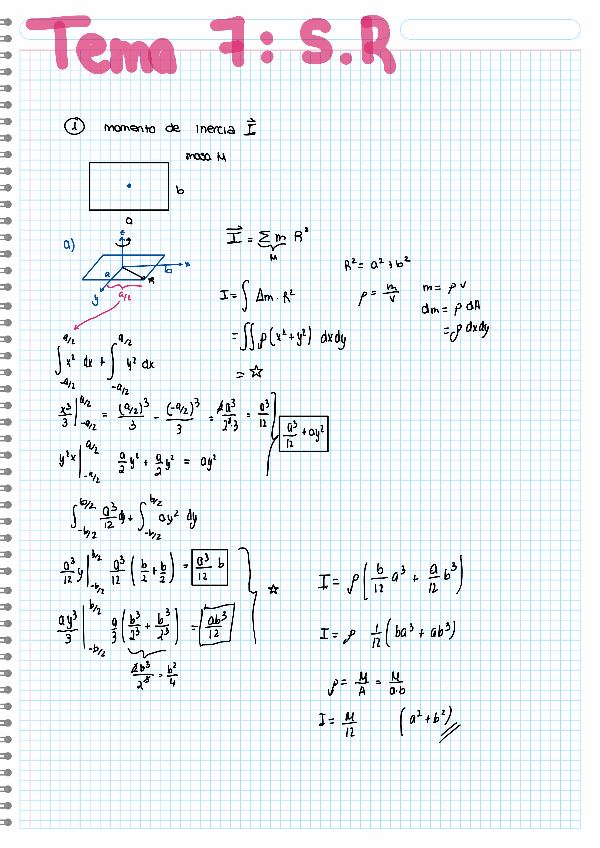 Tema 7: S.R
① momento de inercia I⃗
masa M
b
a
a)
z
x
a
b
R
y
a/2
I⃗ = Σ m R²
M
R² = a² + b²
I = ∫ Δm · R²
ρ = m/V
m = ρ V
dm = ρ dA
= ρ dxdy
= ∬ ρ (x² + y²) dxdy
= ☆
∫_{-a/2}^{a/2} x² dx + ∫_{-a/2}^{a/2} y² dx
x³/3 |_{-a/2}^{a/2} = (a/2)³/3 - (-a/2)³/3 = 2a³/2³3 = a³/12
a³/12 + ay²
y²x |_{-a/2}^{a/2} a/2 y² + a/2 y² = ay²
∫_{-b/2}^{b/2} a³/12 dy + ∫_{-b/2}^{b/2} ay² dy
a³/12 y |_{-b/2}^{b/2} a³/12 (b/2 + b/2) = a³/12 b
☆
ay³/3 |_{-b/2}^{b/2} a/3 (b³/2³ + b³/2³) = ab³/12
2b³/2³ = b²/4
I = ρ (b/12 a³ + a/12 b³)
I = ρ 1/12 (ba³ + ab³)
ρ = M/A = M/a·b
I = M/12 (a² + b²)